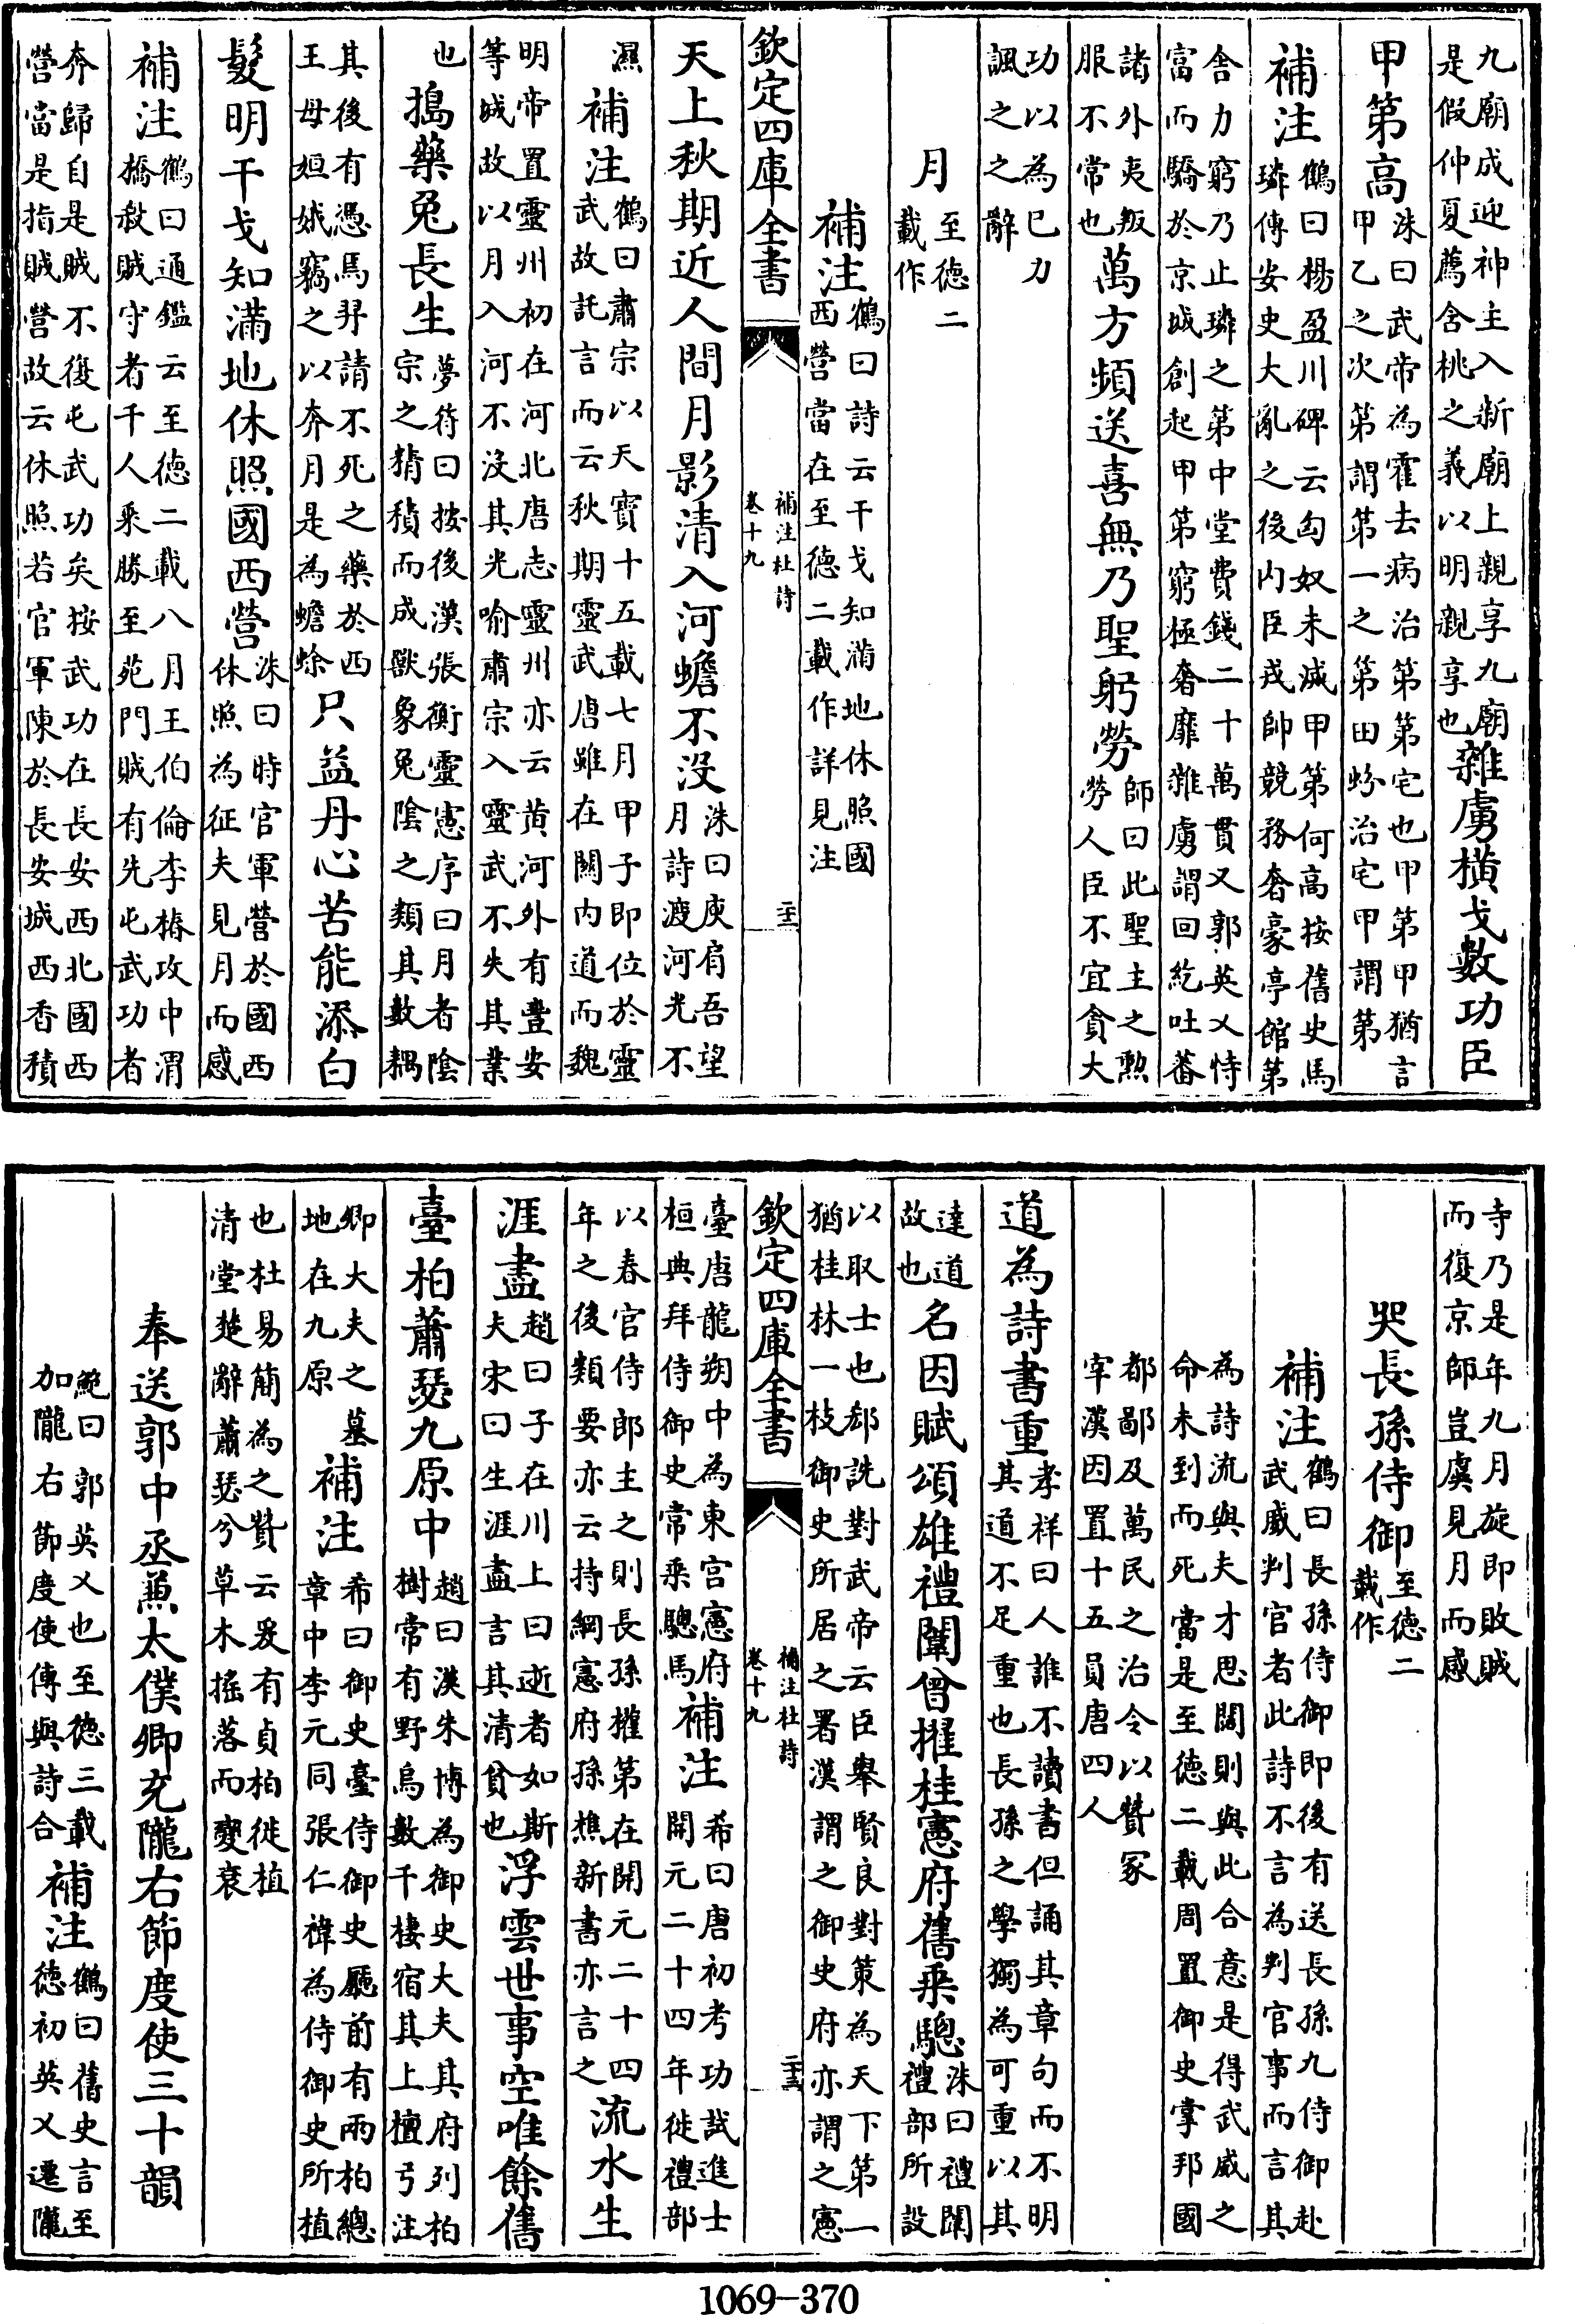 九廟成迎神主入新廟上親享九廟
是假仲夏薦含桃之義以明親享也雜虜橫戈數功臣
甲第高洙曰武帝為霍去病治第第宅也甲第甲猶言
甲乙之次第謂第一之第田蚡治宅甲謂第
補注鶴曰楊盈川碑云匈奴未滅甲第何高按舊史馬
璘傳安史大亂之後内臣戎帥競務奢豪亭館第
舍力窮乃止璘之第中堂費錢二十萬貫又郭英乂恃
富而驕於京城創起甲第窮極奢靡雜虜謂回紇吐蕃
諸外夷叛
服不常也萬方頻送喜無乃聖躬勞師曰此聖主之勲
勞人臣不宜貪大
功以為已力
諷之之辭
月至德二
載作
補注鶴曰詩云干戈知滿地休照國
西營當在至德二載作詳見注
欽定四庫全書
補注杜詩
卷十九
二十二
天上秋期近人間月影清入河蟾不沒洙曰庾肩吾望
月詩渡河光不
濕補注鶴曰肅宗以天寳十五載七月甲子即位於靈
武故託言而云秋期靈武唐雖在關内道而魏
明帝置靈州初在河北唐志靈州亦云黄河外有豐安
等城故以月入河不沒其光喻肅宗入靈武不失其業
也搗藥兔長生夢符曰按後漢張衡靈憲序曰月者陰
宗之精積而成獸象兔陰之類其數耦
其後有憑馬羿請不死之藥於西
王母姮娥竊之以奔月是為蟾蜍只益丹心苦能添白
髮明干戈知滿地休照國西營洙曰時官軍營於國西
休照為征夫見月而感
補注鶴曰通鑑云至德二載八月王伯倫李椿攻中渭
橋敘賊守者千人乘勝至苑門賊有先屯武功者
奔歸自是賊不復屯武功矣按武功在長安西北國西
營當是指賊營故云休照若官軍陳於長安城西香積
寺乃是年九月旋即敗賊
而復京師豈虞見月而感
哭長孫侍御至德二
載作
補注鶴曰長孫侍御即後有送長孫九侍御赴
武威判官者此詩不言為判官事而言其
為詩流與夫才思闊則與此合意是得武威之
命未到而死當是至德二載周置御史掌邦國
都鄙及萬民之治令以贊冢
宰漢因置十五員唐四人
道為詩書重孝祥曰人誰不讀書但誦其章句而不明
其道不足重也長孫之學獨為可重以其
達道
故也名因賦頌雄禮闈曾擢桂憲府舊乘驄洙曰禮闈
禮部所設
以取士也郄詵對武帝云臣舉賢良對策為天下第一
猶桂林一枝御史所居之署漢謂之御史府亦謂之憲
欽定四庫全書
補注杜詩
卷十九
二十三
臺唐龍朔中為東宫憲府
桓典拜侍御史常乘驄馬補注希曰唐初考功試進士
開元二十四年徙禮部
以春官侍郎主之則長孫擢第在開元二十四
年之後類要亦云持綱憲府孫樵新書亦言之流水生
涯盡趙曰子在川上曰逝者如斯
夫宋曰生涯盡言其清貧也浮雲世事空唯餘舊
臺柏蕭瑟九原中趙曰漢朱博為御史大夫其府列柏
樹常有野烏數千棲宿其上檀弓注
卿大夫之墓
地在九原補注希曰御史臺侍御史廳前有兩柏總
章中李元同張仁禕為侍御史所植
也杜易簡為之贊云爰有貞柏徙植
清堂楚辭蕭瑟兮草木搖落而變衰
奉送郭中丞兼太僕卿充隴右節度使三十韻
鮑曰郭英乂也至德三載
加隴右節度使傳與詩合補注鶴曰舊史言至
德初英乂遷隴
1069-370